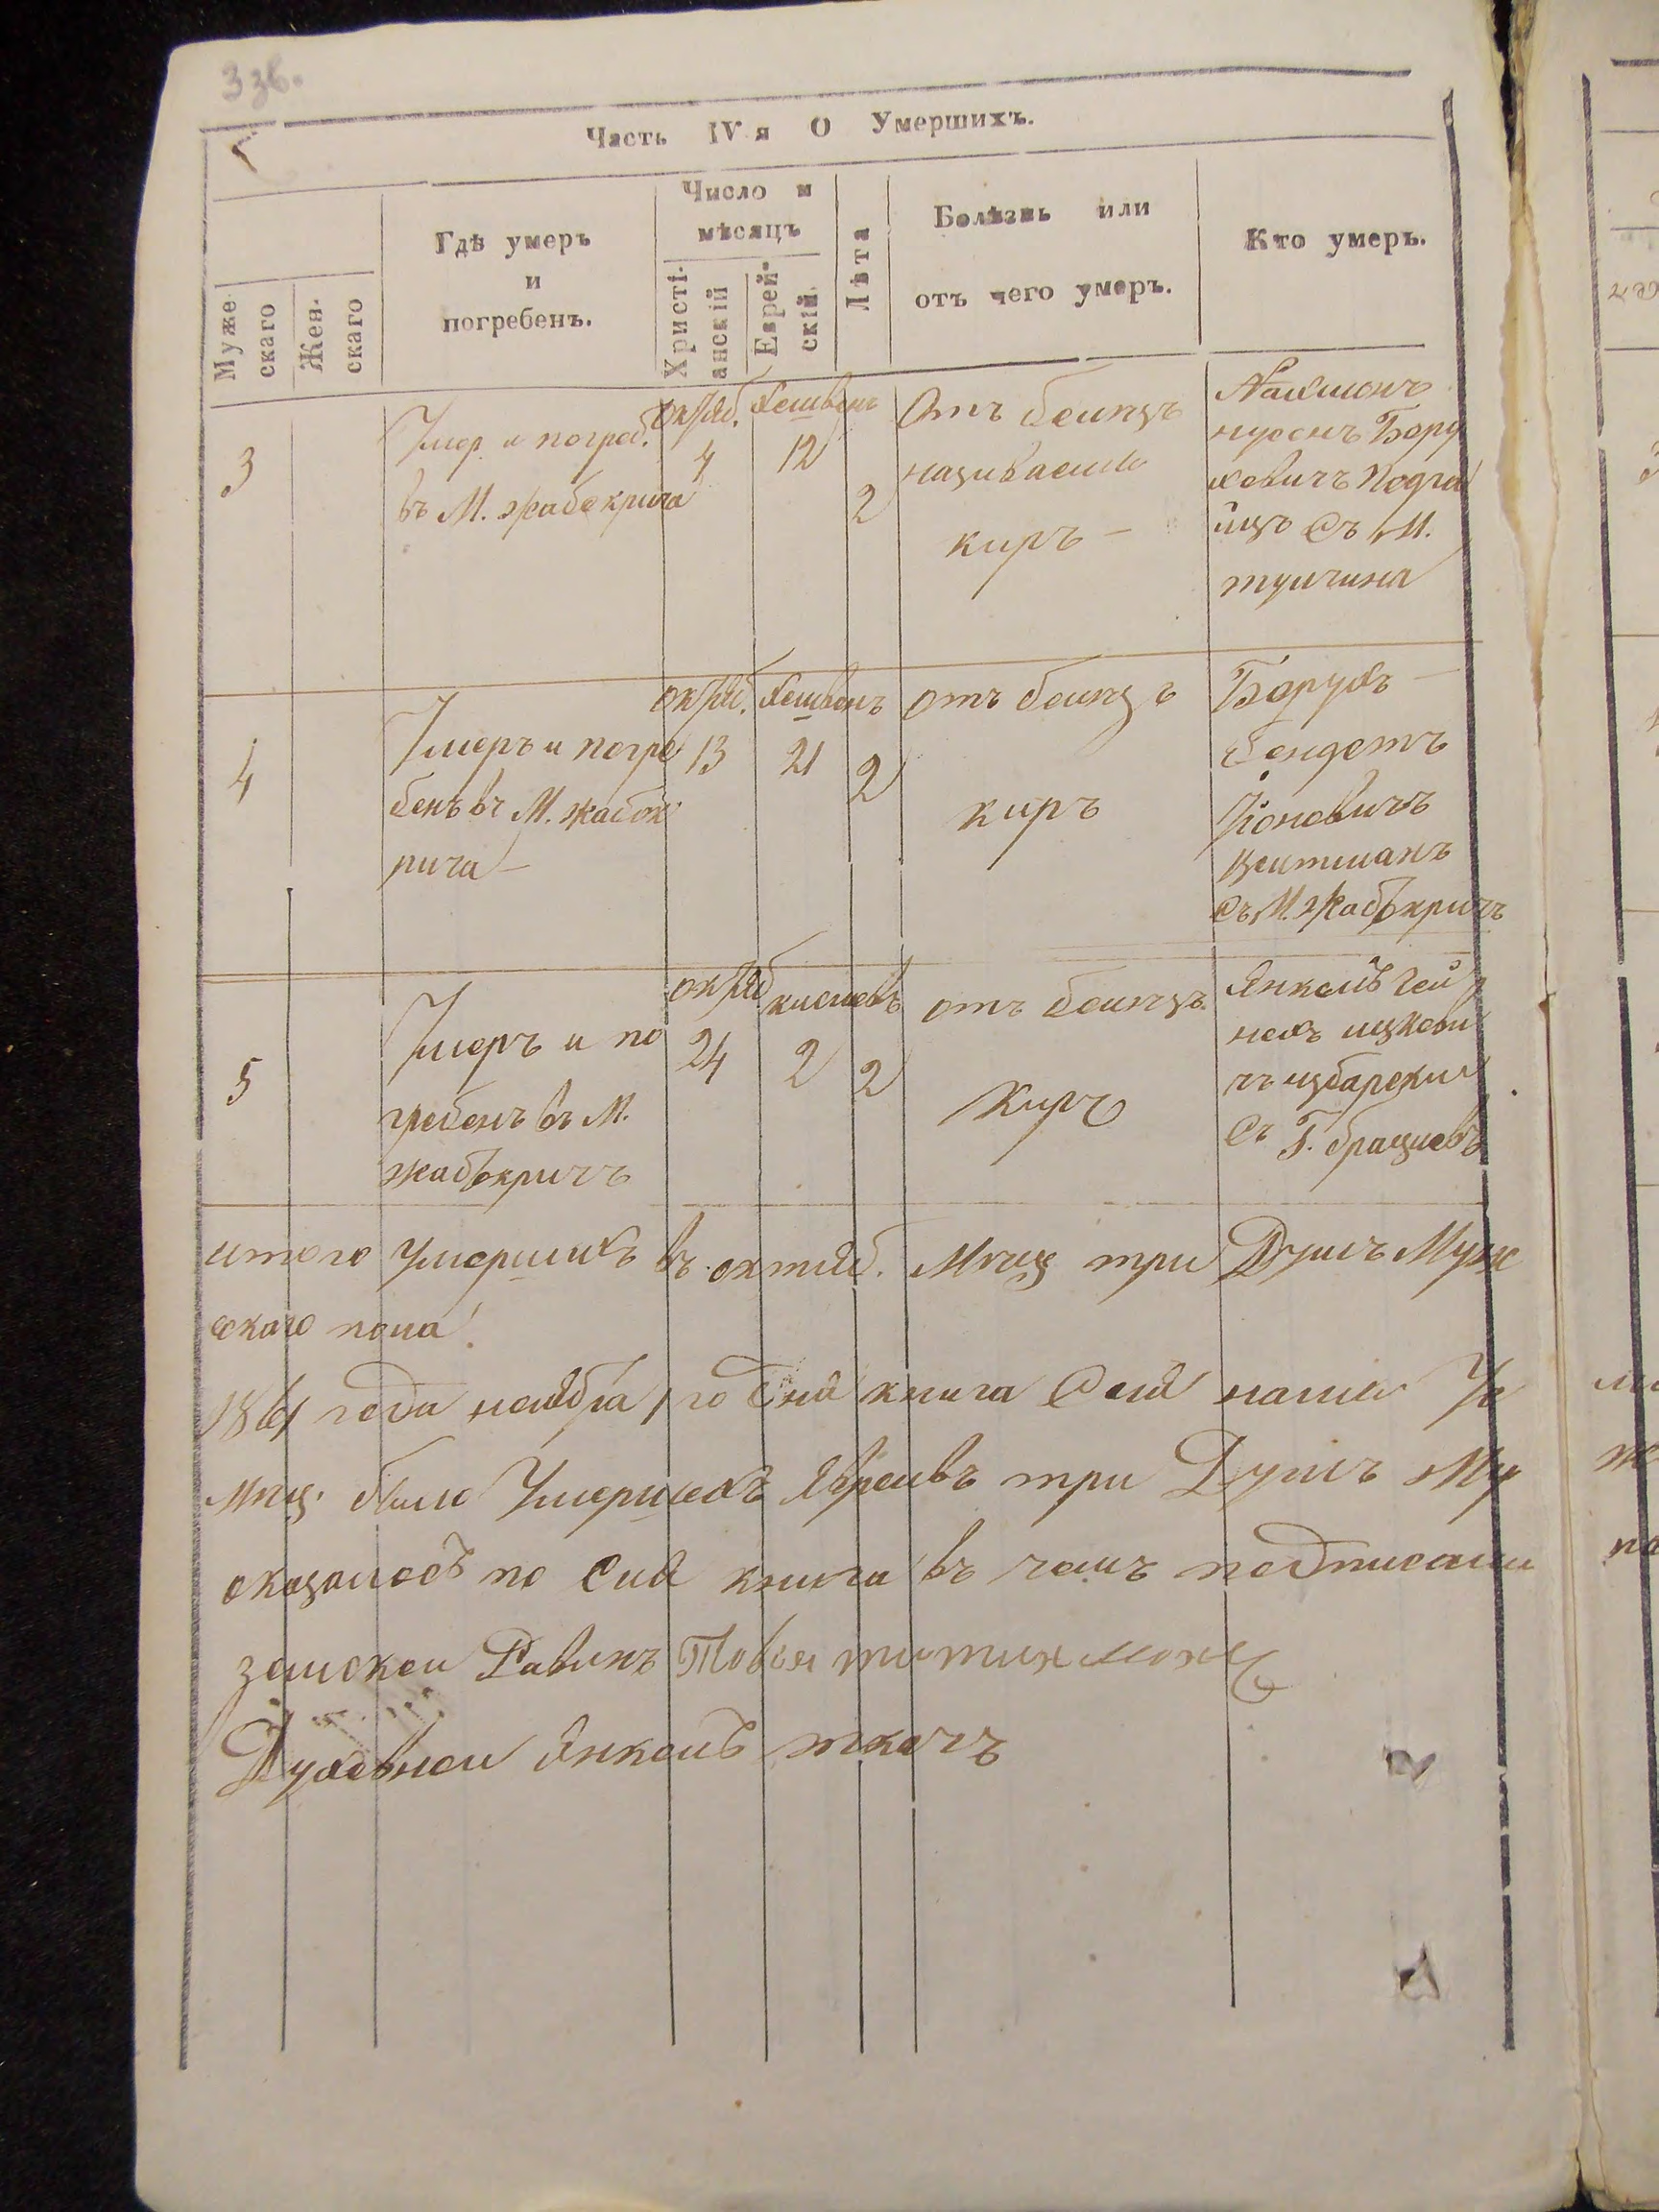 33б.
Часть IV я О Умершихъ.
Муже
скаго
Жен-
скаго
Гдѣ умеръ
и
погребенъ.
Число и
мѣсяцъ
Христі-
анскій
Еврей-
скій.
Лѣта
Болѣзнь или
отъ чего умеръ.
Кто умеръ.
3
Умер и погреб.
въ М. жабокрича
октяб.
4
Хешвенъ
12
2
Отъ
називаеми
киръ —
Нахманъ
нусенъ Бору
ховичъ Подга
ицъ съ М.
тулчина
4
Умеръ и погре
бенъ въ М. жабок
рича —
октяб.
13
Хешвенъ
21
2
отъ
киръ
Борухъ —
бендетъ
съ М. Жабокричъ
5
Умеръ и по
гребенъ въ М.
жабокричъ
октяб
24
кислевъ
2
2
отъ
Киръ
Янкель Гей
нехъ ицкови
чъ избарский
съ Г. брацлавъ
итого Умершихъ въ октяб. Мсиц три Душъ Муж
скаго пола!
1861 года ноября 1 го дня книга
Мсиц. било Умершихъ Явреивъ три Душъ Му
оказалось по сия книга въ чемъ подписали
Равинъ Товия
Духовнои Янкель ткачъ